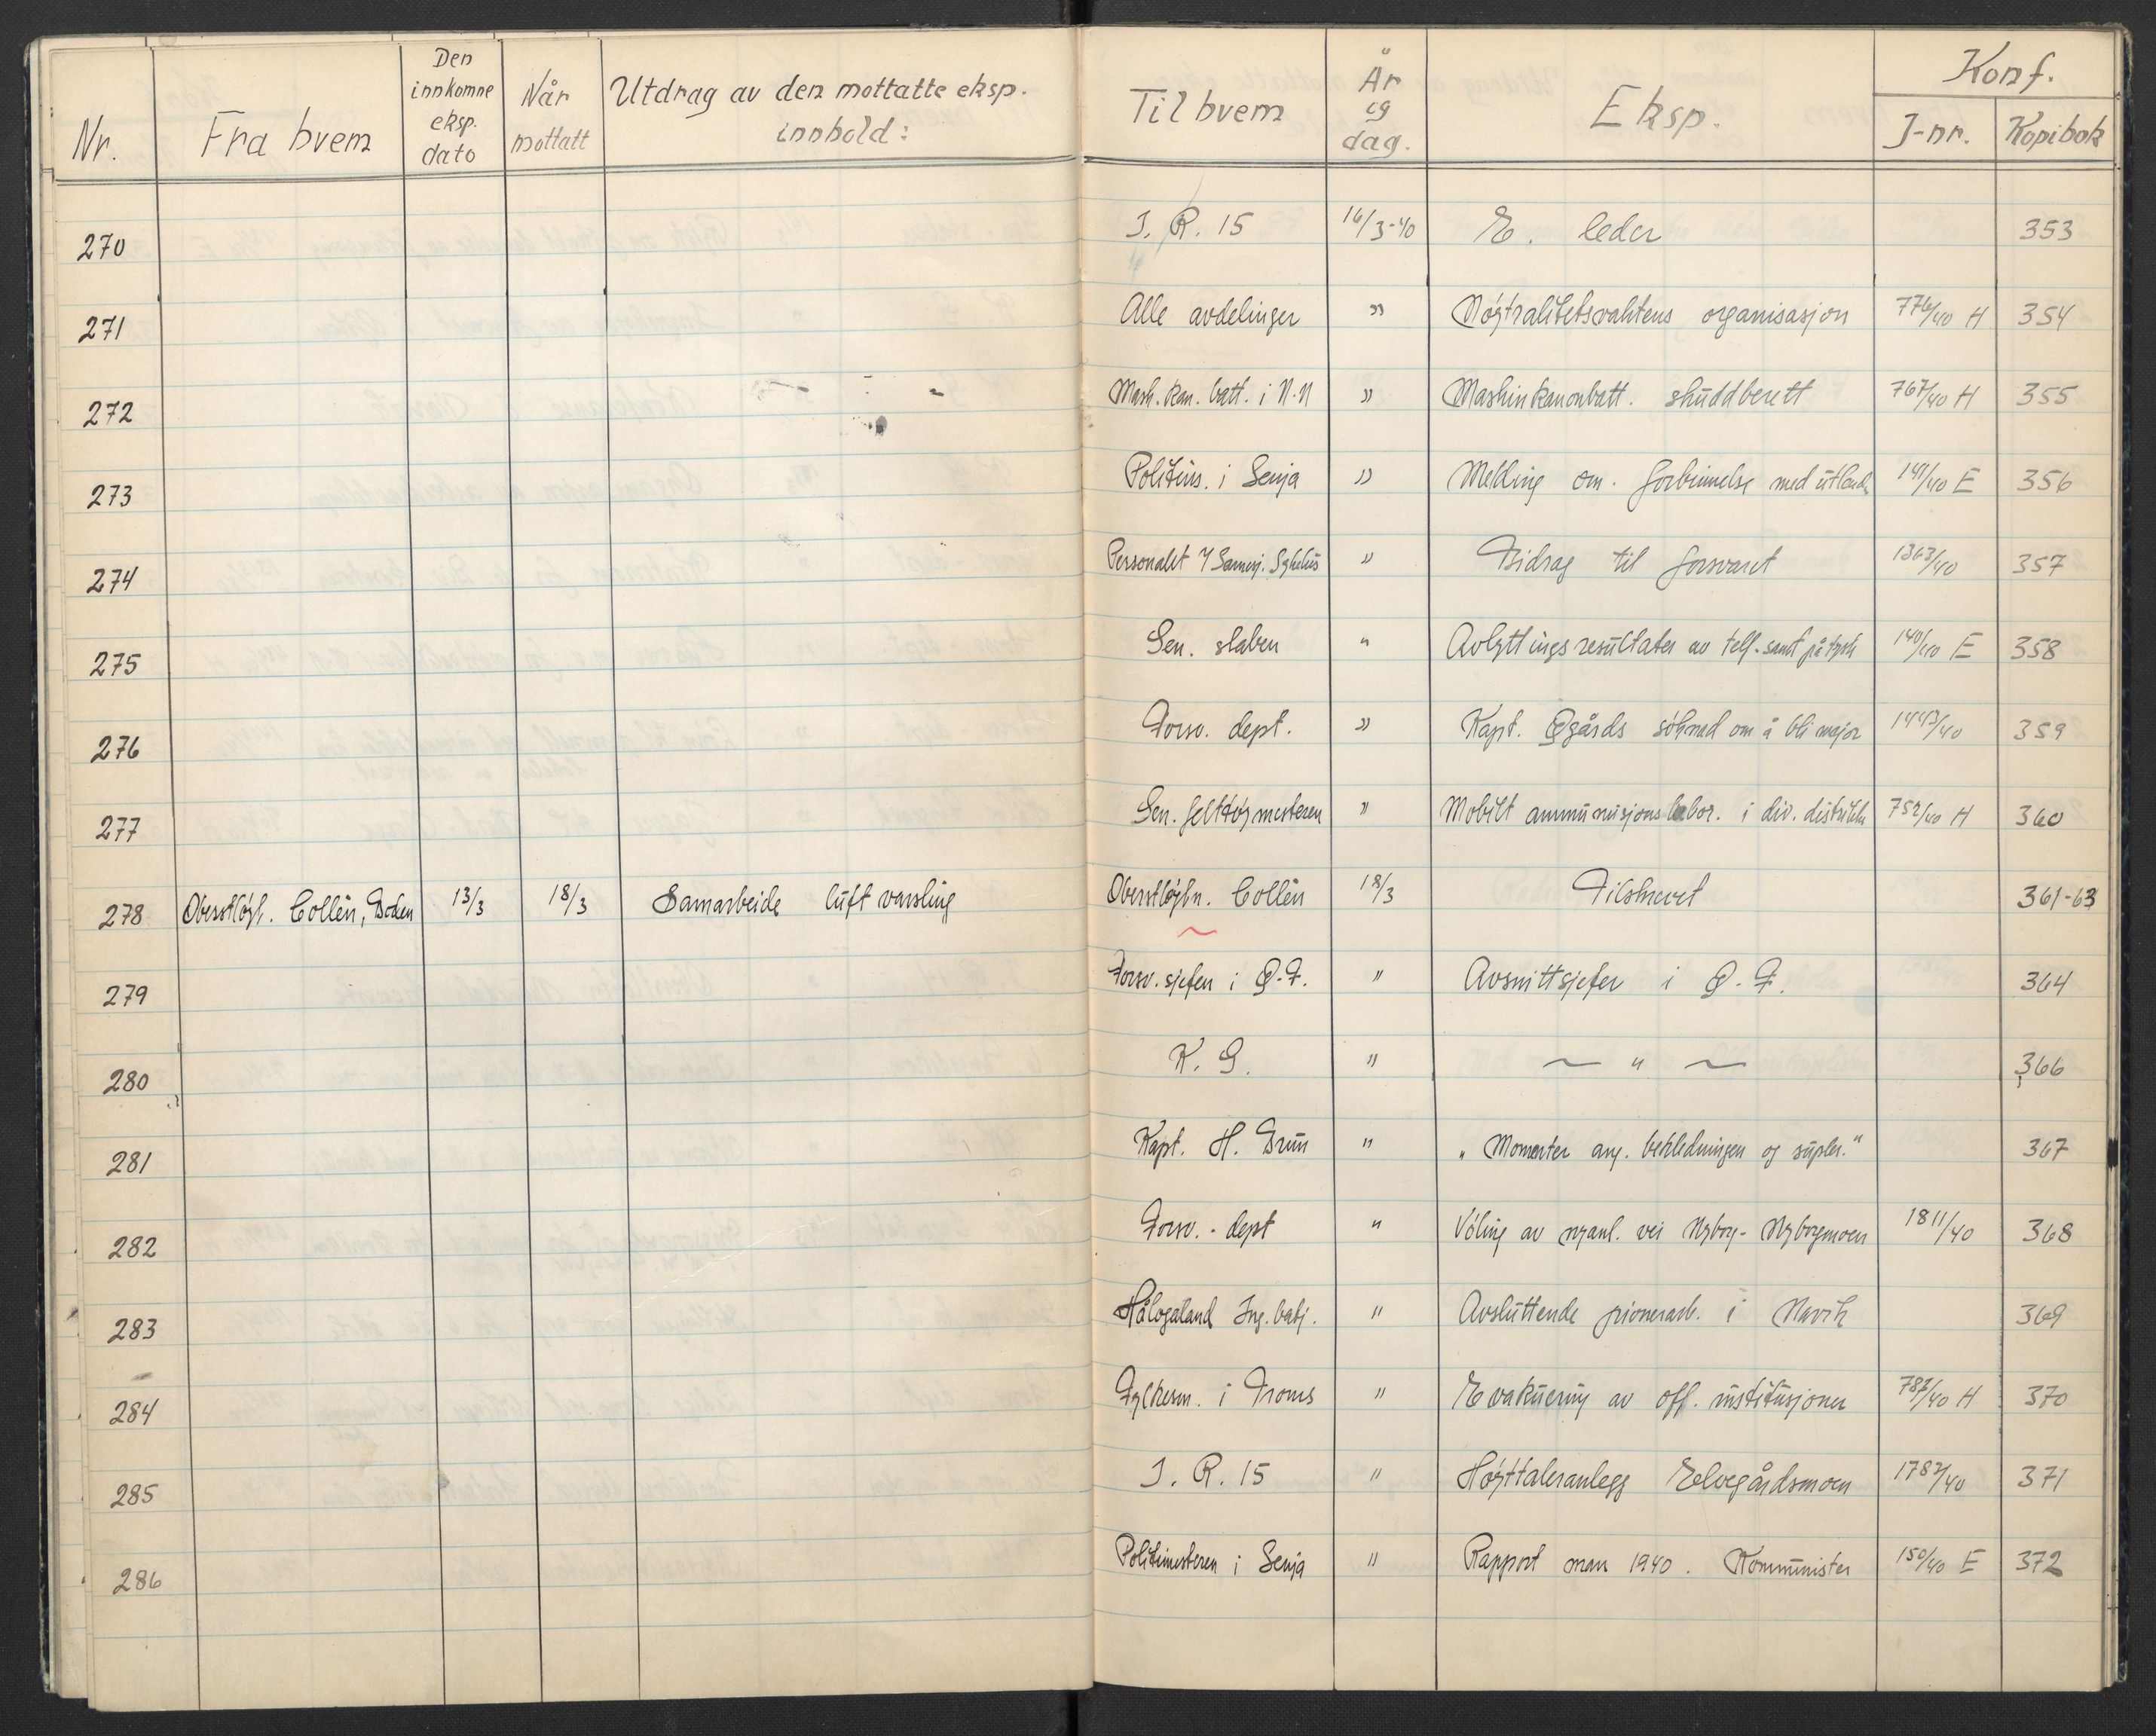 Nr. Fra hvem Den innkomne eksp. dato Når mottatt Utdrag av den mottatte eksp. innhold: Til hvem År og dag. Eksp. Konf. J-nr. Kopibok
270 I. R. 15 16/3-40 E. leder 353
271 Alle avdelinger " Nøytralitetsvaktens organisasjon 776/40 H 354
272 Mask. kan. batt. i N.N " Maskinkanonbatt. skuddberett 767/40 H 355
273 Politim. i Senja " Melding om. forbinnelse med utland 149/40 E 356
274 Personalet Sykehus " Bidrag til forsvaret 1363/40 357
275 Gen. staben " Avlyttingsresultater av telf.samt på tysk 140/40 E 358
276 Forsv. dept. " Kapt. Øgårds søknad om å bli major 1443/40 359
277 Gen. felttøymesteren " Mobilt ammunisjonslabor. i div. distrikt 752/40 H 360
278 Oberstløyt. Collén, Boden 13/3 18/3 Samarbeide luft varsling Oberstløytn. Collén 18/3 Tilskrevet 361-63
279 Forsv. sjefen i Ø.F. " Avsnittsjefer i Ø.F. 364
280 K. G. " — " — 366
281 Kapt. H. Brun " „Momenter ang. bekledningen og supler." 367
282 Forsv. - dept " Vøling av nyanl. vei Nyborg - Nyborgmoen 1811/40 368
283 Hålogaland Ing. batj. " Avsluttende pionerarb. i Narvik 369
284 Fylkesm. i Troms " Evakuering av off. institusjoner 787/40 H 370
285 I. R. 15 " Høyttaleranlegg Elvegårdsmoen 1782/40 371
286 Politimesteren i Senja " Rapport mars 1940. Kommunister 150/40 E 372